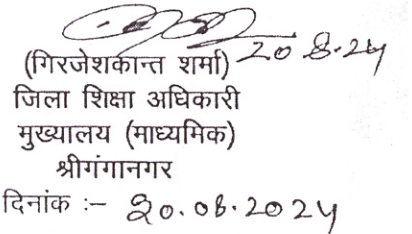 20.8.24
(गिरजेशकान्त शर्मा)
जिला शिक्षा अधिकारी
मुख्यालय (माध्यमिक)
श्रीगंगानगर
दिनांक :- 20.08.2024